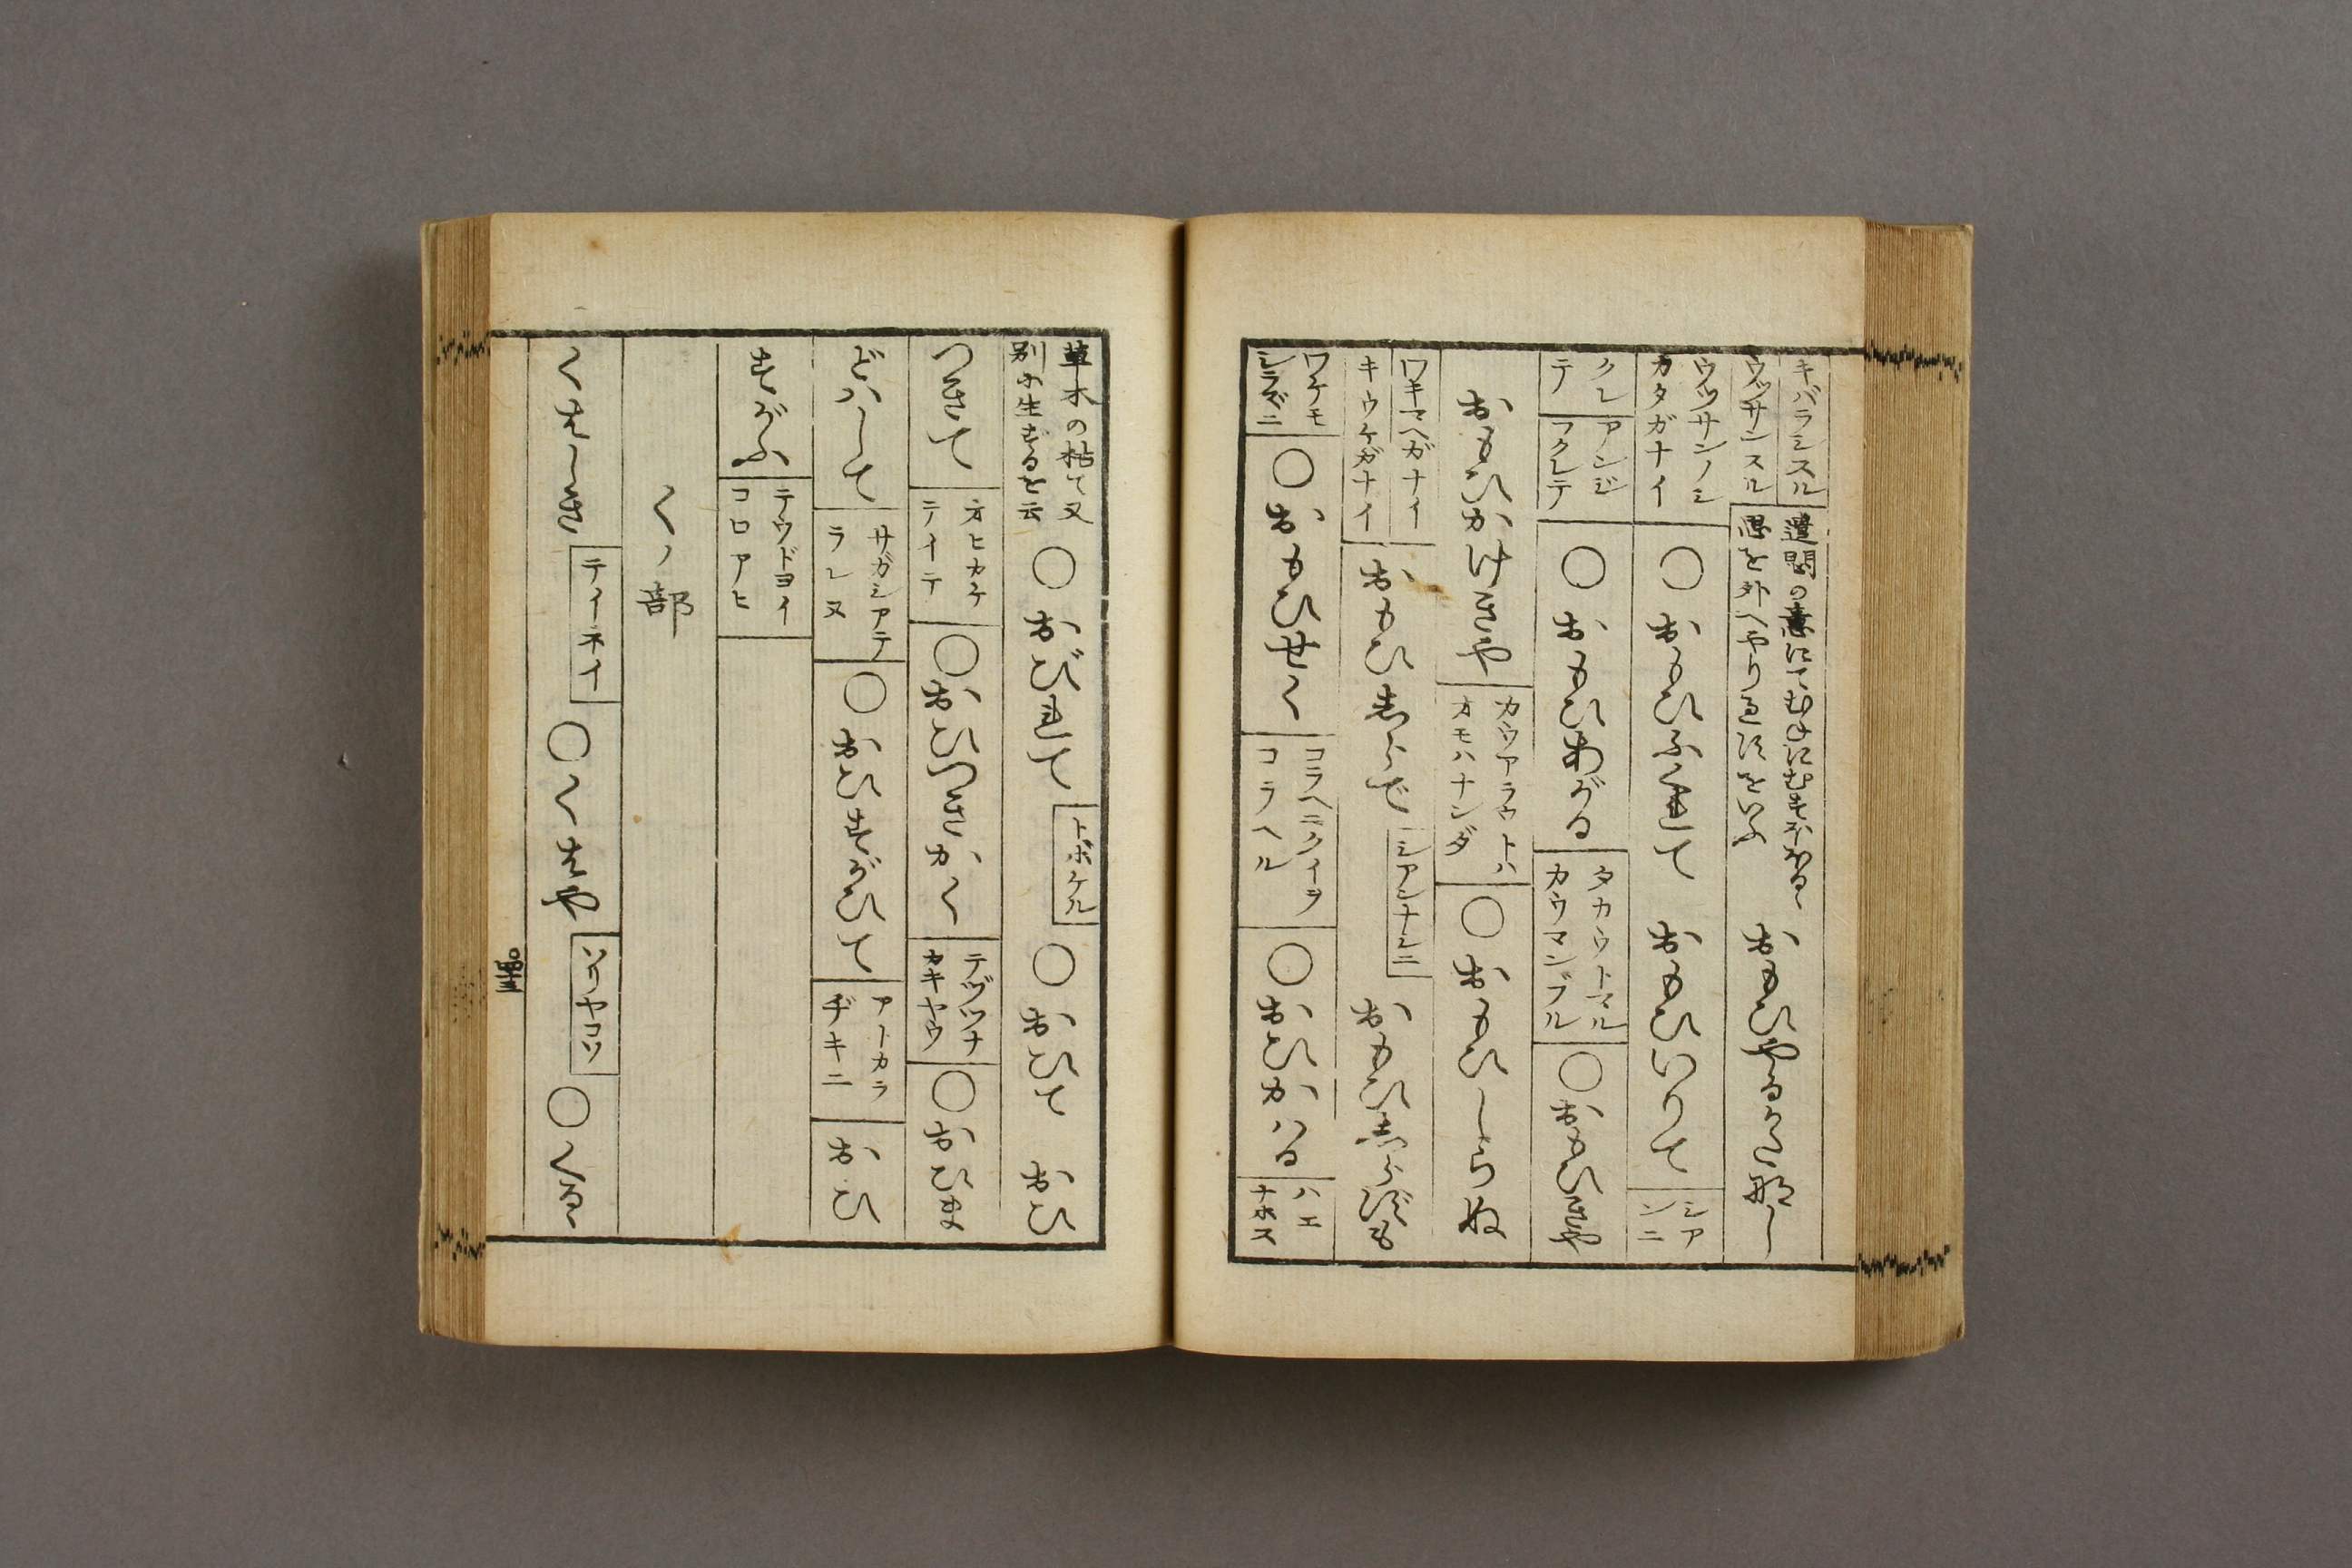 キバラシスル
ウッサンスル
遣悶の意にてむねにむすぼほる
思を外へやり過すをいふ
おもひやるかた那し
ウッサンノシ
カタガナイ
○おもひふくれて
おもひいりて
シア
ンニ
クレ
テ
アンジ
フクレテ
○おもひあがる
タカウトマル
カウマンブル
○おもひきや
おもひかけきや
カウアラウトハ
オモハナンダ
○おもひしらぬ
ワキマヘガナイ
キウケガナイ
おもひ志らで
シアンナシニ
おもひ志らずも
ワケモ
シラズニ
○おもひせく
コラヘニクイヲ
コラヘル
○おひかはる
ハエ
ナホス
草木の枯て又
別に生ずるを云
○おびれて
トボケル
○おひて
おひ
つきて
オヒカケ
テイテ
○おひつきかく
テヅツナ
カキヤウ
○おひま
どハして
サガシアテ
ラレヌ
○おひすがひて
アトカラ
ヂキニ
おひ
すがふ
テウドヨイ
コロアヒ
くノ部
くはしき
テイネイ
○くはや
ソリヤコソ
○くる